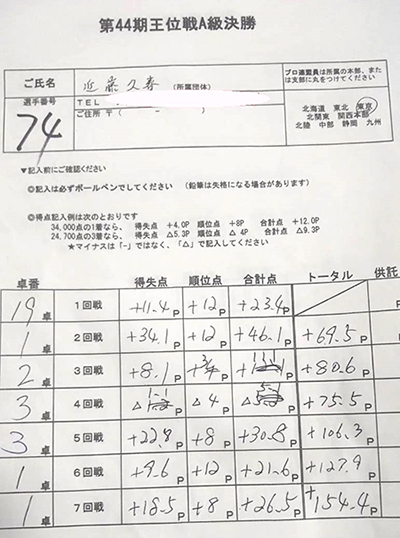 第44期王位戦A級決勝
ご氏名 近藤久春 (所属団体)
選手番号 74
TEL
ご住所 〒( - )
プロ連盟員は所属の本部、また
は支部に丸をつけてください
北海道 東北 東京
北関東 関西本部
北陸 中部 静岡 九州
▼記入前にご確認ください
◎記入は必ずボールペンでしてください (鉛筆は失格になる場合があります)
◎得点記入例は次のとおりです
34,000点の1着なら、 得失点 +4.0P 順位点 +8P 合計点 +12.0P
24,700点の3着なら、 得失点 △5.3P 順位点 △4P 合計点 △9.3P
★マイナスは「-」ではなく、「△」で記入してください
卓番 得失点 順位点 合計点 トータル 供託
19卓 1回戦 +11.4P +12P +23.4P
1卓 2回戦 +34.1P +12P +46.1P +69.5P
2卓 3回戦 +8.1P P P +80.6P
3卓 4回戦 △1.1P △4P △5.1P +75.5P
3卓 5回戦 +22.8P +8P +30.8P +106.3P
1卓 6回戦 +9.6P +12P +21.6P +127.9P
1卓 7回戦 +18.5P +8P +26.5P +154.4P